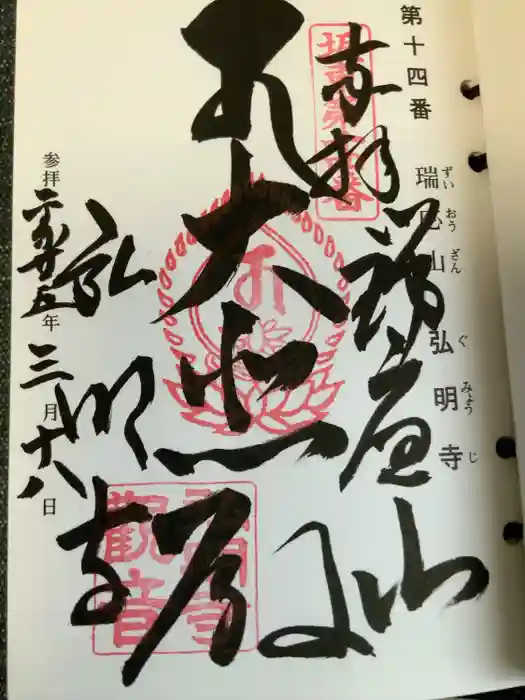 第十四番
瑞応山 弘明寺
ずい おう ざん ぐ みょう じ
奉拝 瑞應山
大悲
弘明寺
参拝 年 三月十八日
弘明寺
觀音